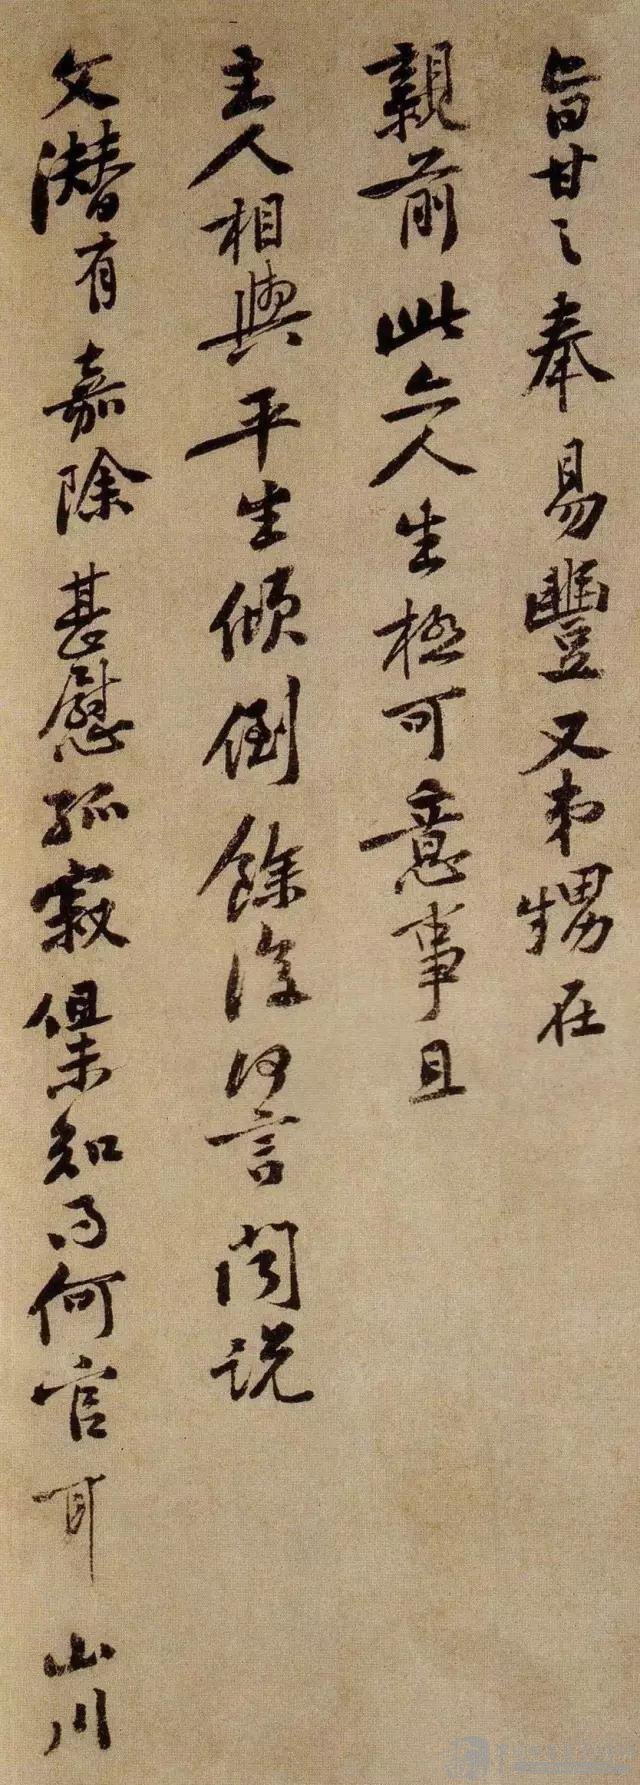 旨甘之奉易豐又弟甥在
親前此亦人生極可意事且
主人相與平生傾倒餘復何言聞說
文潛有嘉除甚慰孤寂但未知得何官耳山川